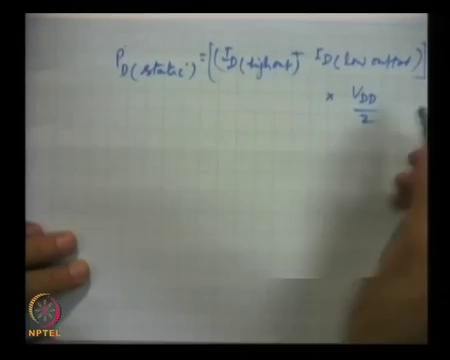 P_D(static) = [(I_D(high out) + I_D(low output)]
× V_DD/2
NPTEL